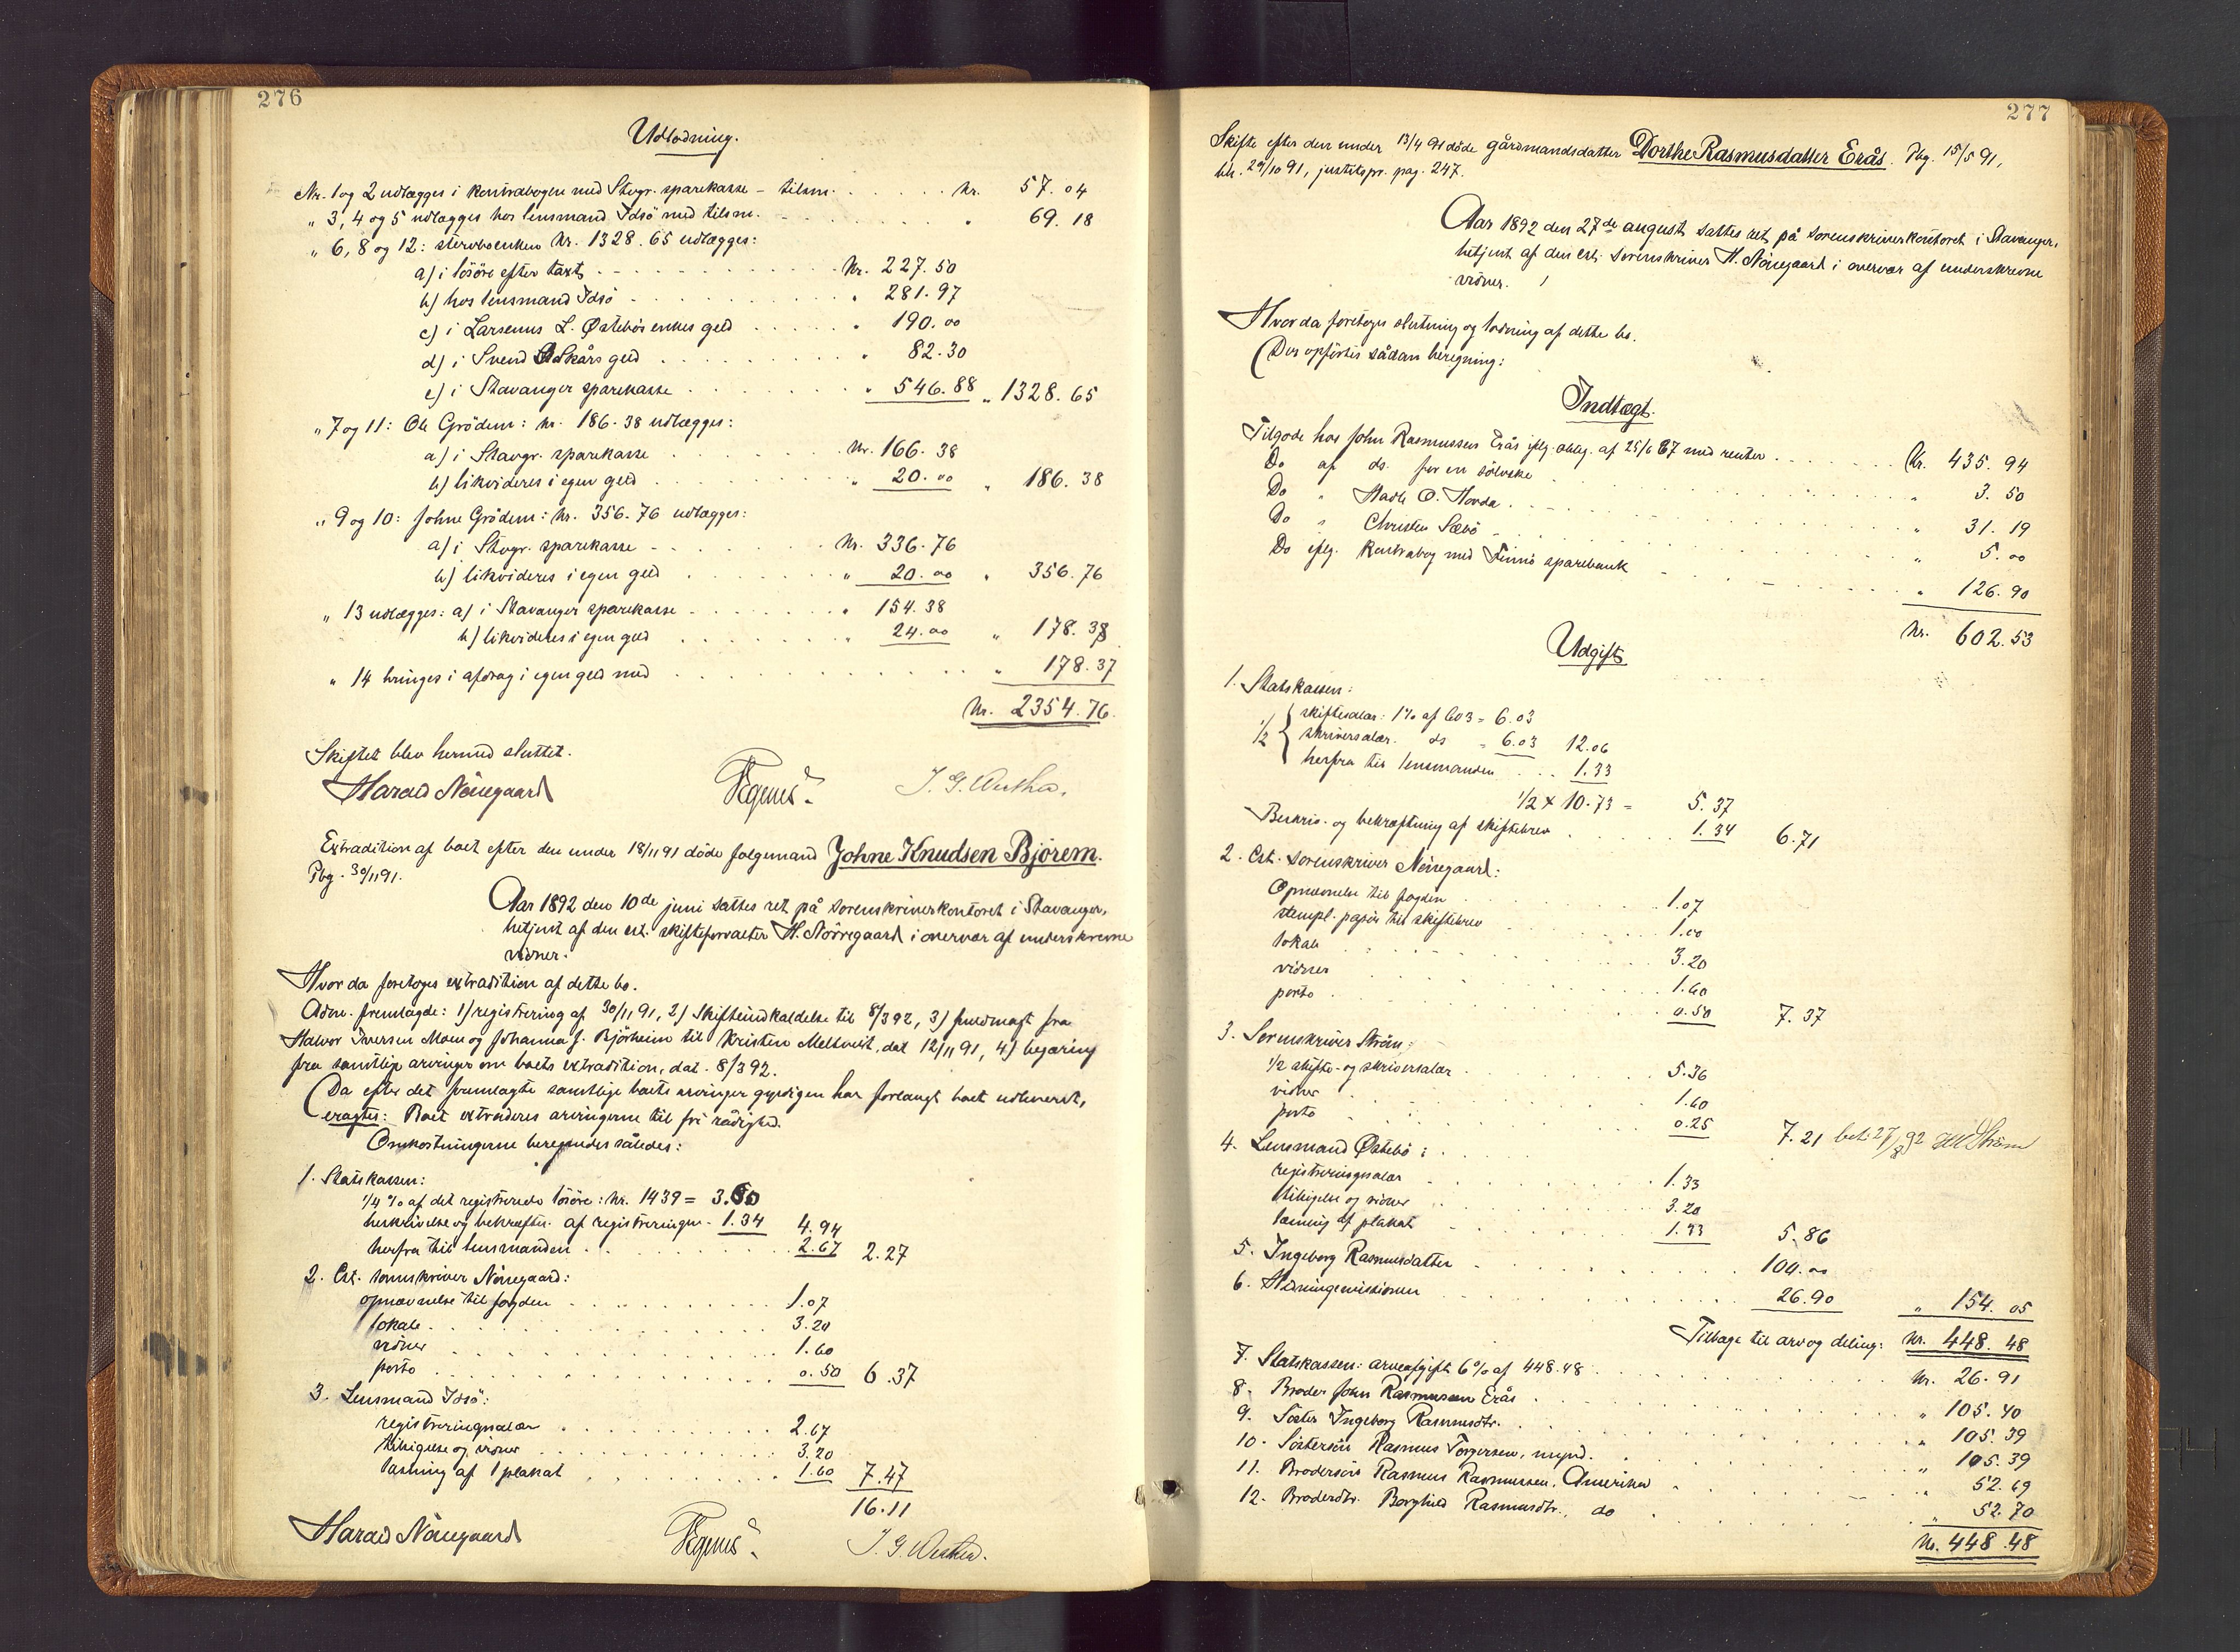 276
Udlodning.
Nr. 1 og 2 udlægges i kontrabogen med Stvgr. sparekasse - tilsm. . . . . kr. 57.04
" 3, 4 og 5 udlægges hos lensmand Idsö med tilsm. - . . . . " 69.18
" 6, 8 og 12: stervboenken kr. 1328.65 udlægges:
a) i lösöre efter taxt - - - - kr. 227.50
b) hos lensmand Idsö - . . . . " 281.97
c) i Larsenus L. Østebös enkes geld . . . . " 190.00
d) i Svend Skårs geld . . . . " 82.30
e) i Stavanger sparekasse . . . . " 546.88 " 1328.65
" 7 og 11: Ole Grödem: kr. 186.38 udlægges:
a) i Stavgr. sparekasse . . . . kr. 166.38
b) likvideres i egen geld . . . . " 20.00 " 186.38
" 9 og 10: Johne Grödem: kr. 356.76 udlægges:
a) i Stvgr. sparekasse - . . . . kr. 336.76
b) likvideres i egen geld . . . . " 20.00 " 356.76
" 13 udlægges: a) i Stavanger sparekasse . . . . " 154.38
b) likvideres i egen geld . . . . " 24.00 " 178.38
" 14 bringes i afdrag i egen geld med . . . . " 178.37
kr. 2354.76.
Skiftet blev hermed sluttet.
Harald Nörregaard
Extradition af boet efter den under 18/11 91 döde folgemand Johne Knudsen Bjørem.
Pbg. 30/11 91.
Aar 1892 den 10de juni sattes ret på sorenskriverkontoret i Stavanger,
betjent af den cst. skifteforvalter H. Nörregaard i overvær af underskrevne
vidner:
Hvor da foretoges extradition af dette bo.
Adm. fremlagde: 1) registrering af 30/11 91, 2) Skifteindkaldelse til 8/3 92, 3) fuldmagt fra
Halvor Iversen Moen og Johanna J. Björheim til Kristen Meltveit, dat 12/11 91, 4) begæring
fra samtlige arvinger om boets extradition, dat. 8/3 92.
Da efter det fremlagte samtlige boets arvinger gyldigen har forlangt boet udleveret,
eragtes: Boet extraderes arvingerne til fri rådighed.
Omkostningerne beregnedes således:
1. Statskassen:
1/4 % af det registrerede lösöre: kr. 1439 = 3.60
beskrivelse og bekræftn. af registreringen - 1.34 4.94
herfra til lensmanden . . . . 2.67 2.27
2. Cst. sorenskriver Nörregaard:
opnævnelse til fogden . . . . 1.07
lokale . . . . 3.20
vidner . . . . 1.60
porto . . . . 0.50 6.37
3. Lensmand Idsö:
registreringssalær . . . . 2.67
tilsigelse og vidner . . . . 3.20
læsning af 1 plakat . . . . 1.60 7.47
16.11
Harald Nörregaard
277
Skifte efter den under 13/4 91 döde gårdmandsdatter Dorthe Rasmusdatter Erås. Pbg. 15/5 91,
beh. 29/10 91, justitspr. pag. 247.
Aar 1892 den 27de august sattes ret på sorenskriverkontoret i Stavanger,
betjent af den cst. sorenskriver H. Nörregaard i overvær af underskrevne
vidner.
Hvor da foretoges slutning og lodning af dette bo.
Der opförtes sådan beregning:
Indtægt.
Tilgode hos John Rasmussen Erås iflg. oblig. af 25/6 87 med renter . . . . Kr. 435.94
Do af ds. for en sölvske . . . . " 3.50
Do " Hadle O. Hovda . . . . " 31.19
Do " Christen Sæbö . . . . " 5.00
Do iflg. kontrabog med Finnö sparebank . . . . " 126.90
kr. 602.53
Udgift
1. Statskassen:
1/2 { skiftesalær: 1% af 603 = 6.03
skriversalær. ds = 6.03 12.06
herfra til lensmanden . . . 1.33
1/2 x 10.73 = 5.37
Beskriv. og bekræftning af skiftebrev . . . . 1.34 6.71
2. Cst. sorenskriver Nörregaard:
Opnævnelse til fogden . . . . 1.07
stempl. papir til skiftebrev . . . . 1.00
lokale . . . . 3.20
vidner . . . . 1.60
porto . . . . 0.50 7.37
3. Sorenskriver Ström:
1/2 skifte- og skriversalær . . . . 5.36
vidner . . . . 1.60
porto . . . . 0.25 7.21 bet. 27/8 92 Ström
4. Lensmand Østebö: . . . .
registreringssalær . . . . 1.33
tilsigelse og vidner . . . . 3.20
læsning af plakat . . . . 1.33 5.86
5. Ingeborg Rasmusdatter . . . . 100.00
6. Hedningemissionen . . . . 26.90 " 154.05
Tilbage til arv og deling: kr. 448.48
7. Statskassen: arveafgift 6% af 448.48 . . . . kr. 26.91
8. Broder John Rasmussen Erås . . . . " 105.40
9. Söster Ingeborg Rasmusdtr. . . . . " 105.39
10. Söstersön Rasmus Torgersen, mynd. . . . . " 105.39
11. Brodersön Rasmus Rasmussen, Amerika . . . . " 52.69
12. Broderdtr. Borghild Rasmusdtr., do . . . . " 52.70
kr. 448.48